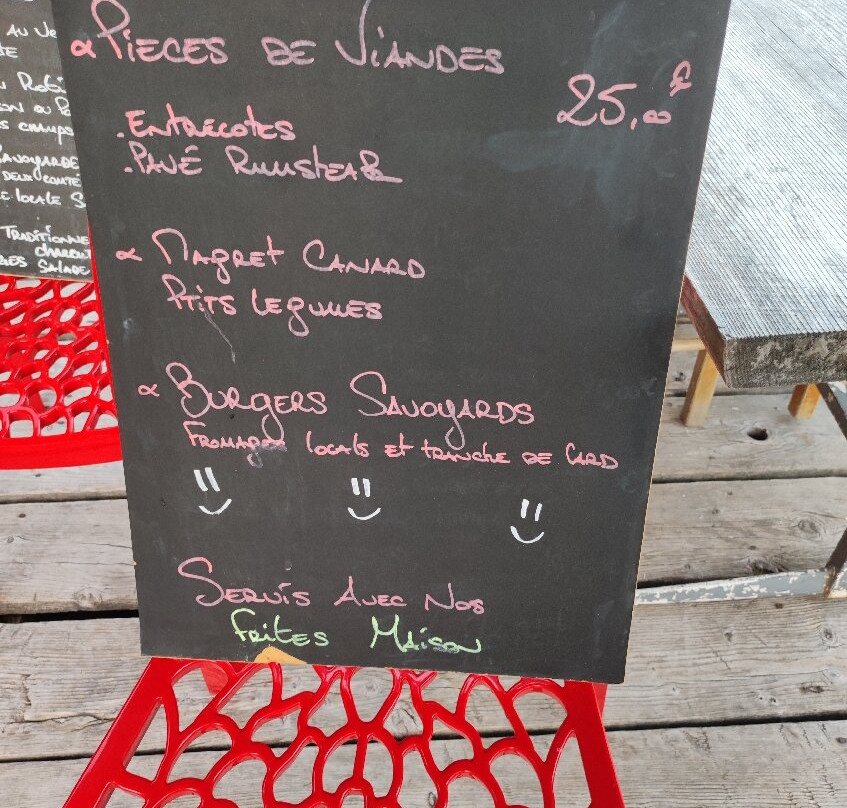 AU
Robl
ON OU PO
S CHAMPS
SAVOYARDE
DEUX COMTÉ
LOCALE S
TRADITIONNE
SALADE
∝ PIECES DE VIANDES
25,00€
. ENTRECOTES
. PAVÉ RUMSTEAK
∝ MAGRET CANARD
PTITS LEGUMES
∝ BURGERS SAVOYARDS
FROMAGES LOCALS ET TRANCHE DE LARD
SERVIS AVEC NOS
FRITES MAISON